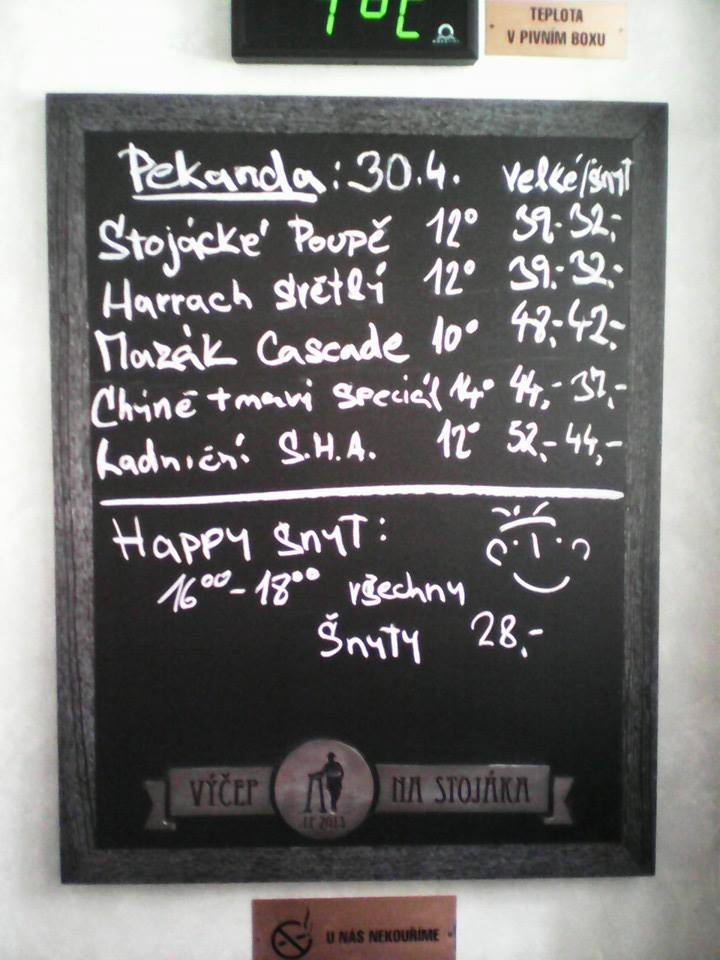 7°C
TEPLOTA
V PIVNÍM BOXU
Pekanda: 30.4. velké/šnyt
Stojácké Poupě 12° 39,- 32,-
Harrach světlý 12° 39,- 32,-
Mazák Cascade 10° 48,- 42,-
Chýně tmavý speciál 14° 44,- 37,-
Ladniční S.H.A. 12° 52,- 44,-
Happy šnyt:
16⁰⁰-18⁰⁰ všechny
Šnyty 28,-
VÝČEP NA STOJÁKA
LP 2013
U NÁS NEKOUŘÍME